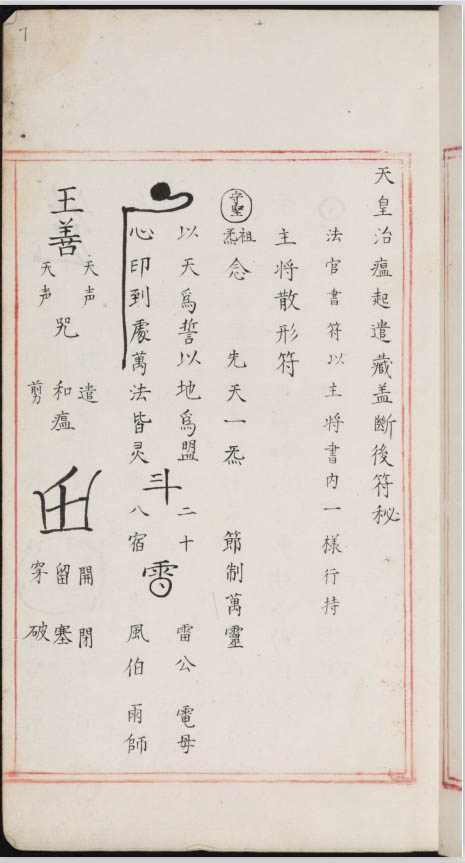 天皇治瘟起遣藏盖斷後符秘
法官書符以主將書內一樣行持
主將散形符
守聖
祖炁念 先天一炁 節制萬靈
以天爲誓以地爲盟 二十 雷公 電母
心印到處萬法皆灵 斗 八宿 雷 風伯 雨師
王善
天声 天声 咒
遣 和瘟 剪
開 閉
留 塞
穿 破
7